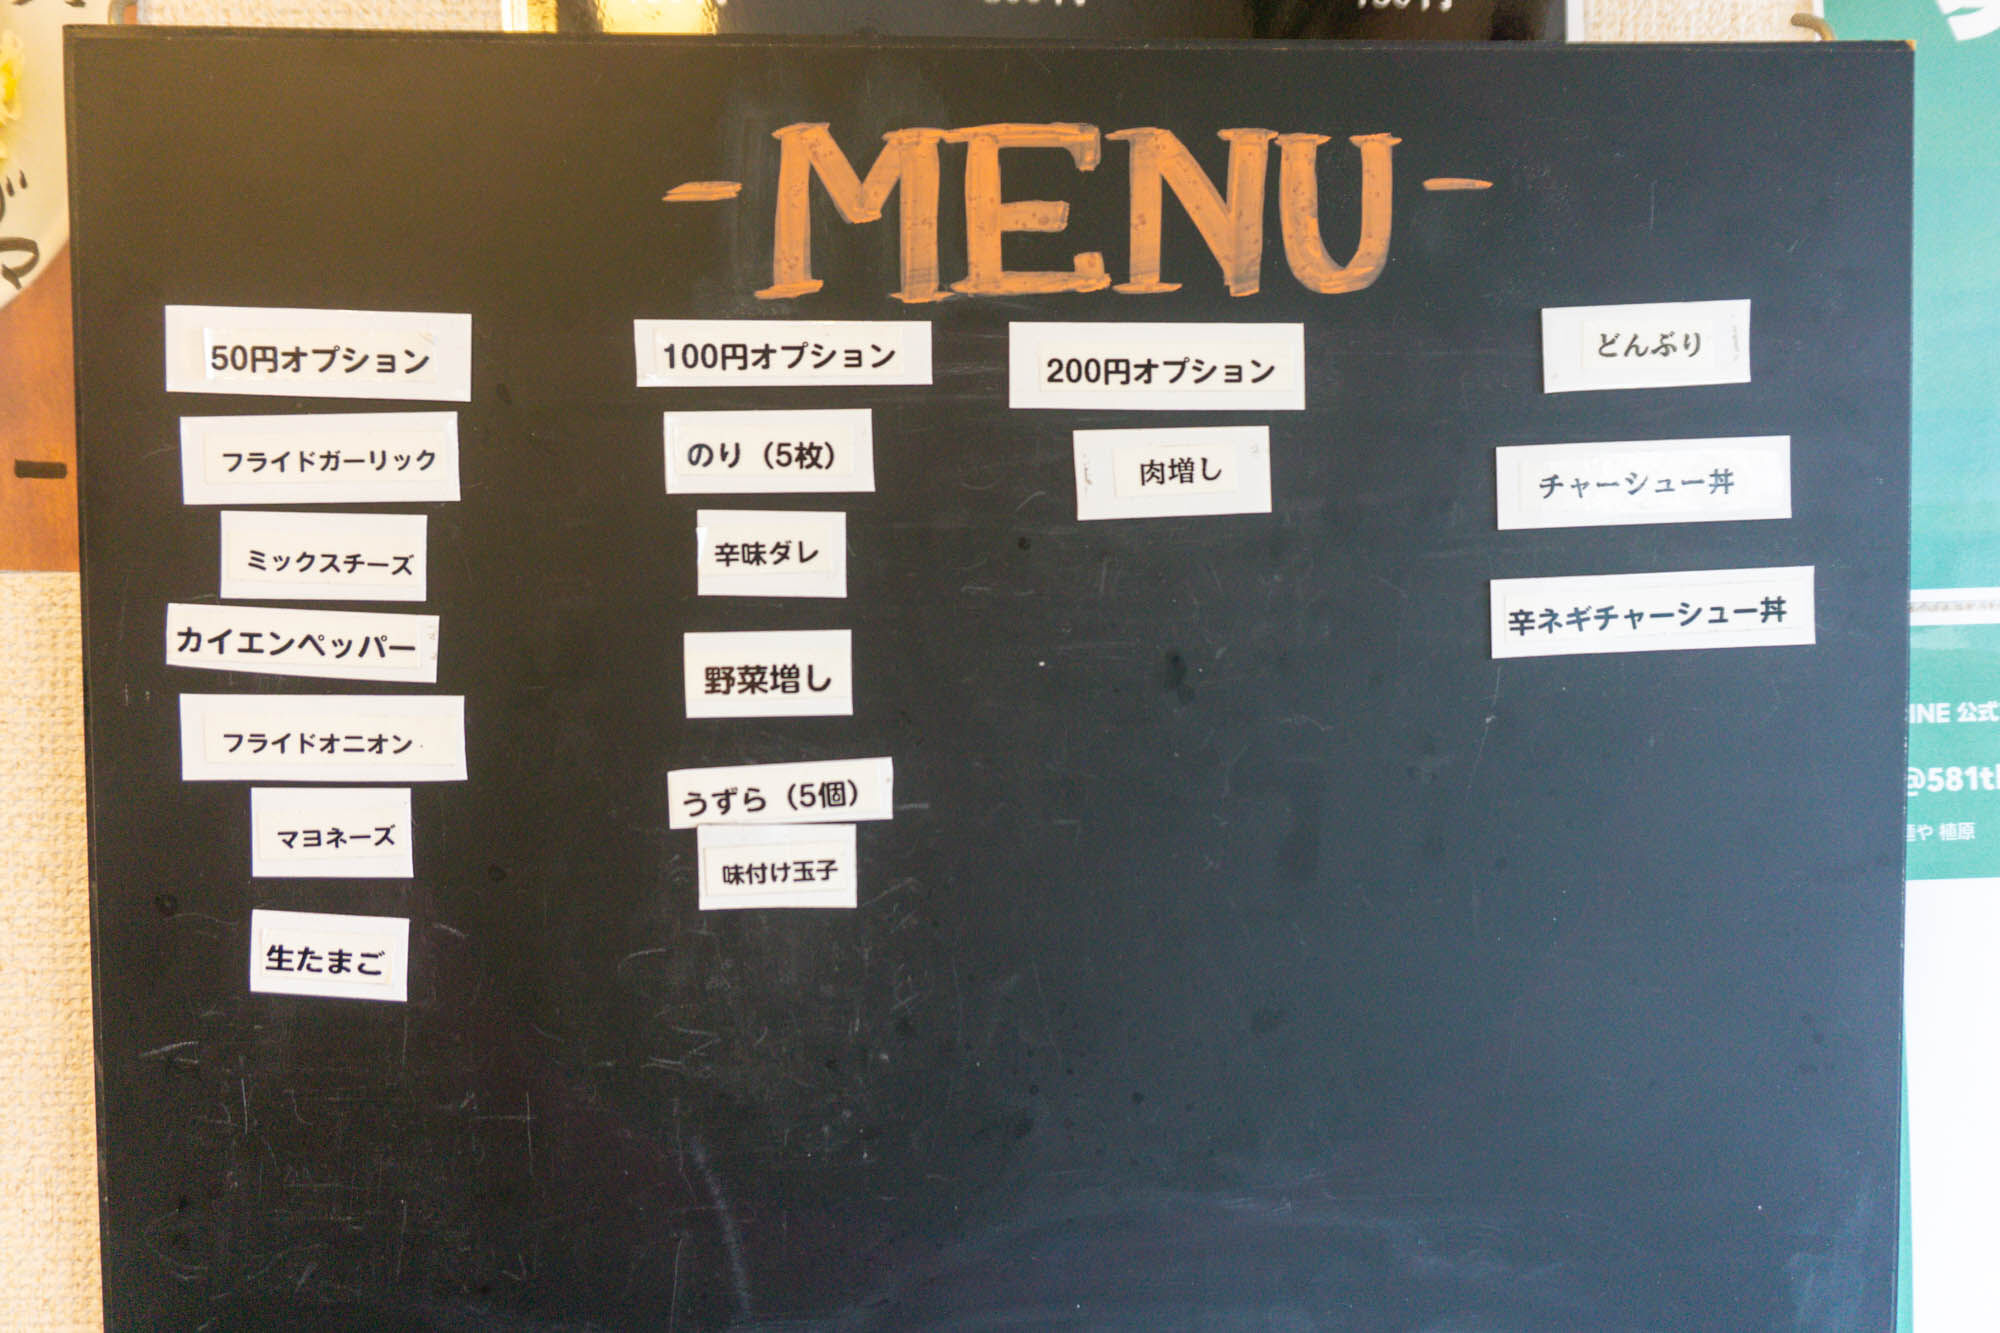 -MENU-
50円オプション
フライドガーリック
ミックスチーズ
カイエンペッパー
フライドオニオン
マヨネーズ
生たまご
100円オプション
のり（5枚）
辛味ダレ
野菜増し
うずら（5個）
味付け玉子
200円オプション
肉増し
どんぶり
チャーシュー丼
辛ネギチャーシュー丼
INE 公式
@581t
や 植原